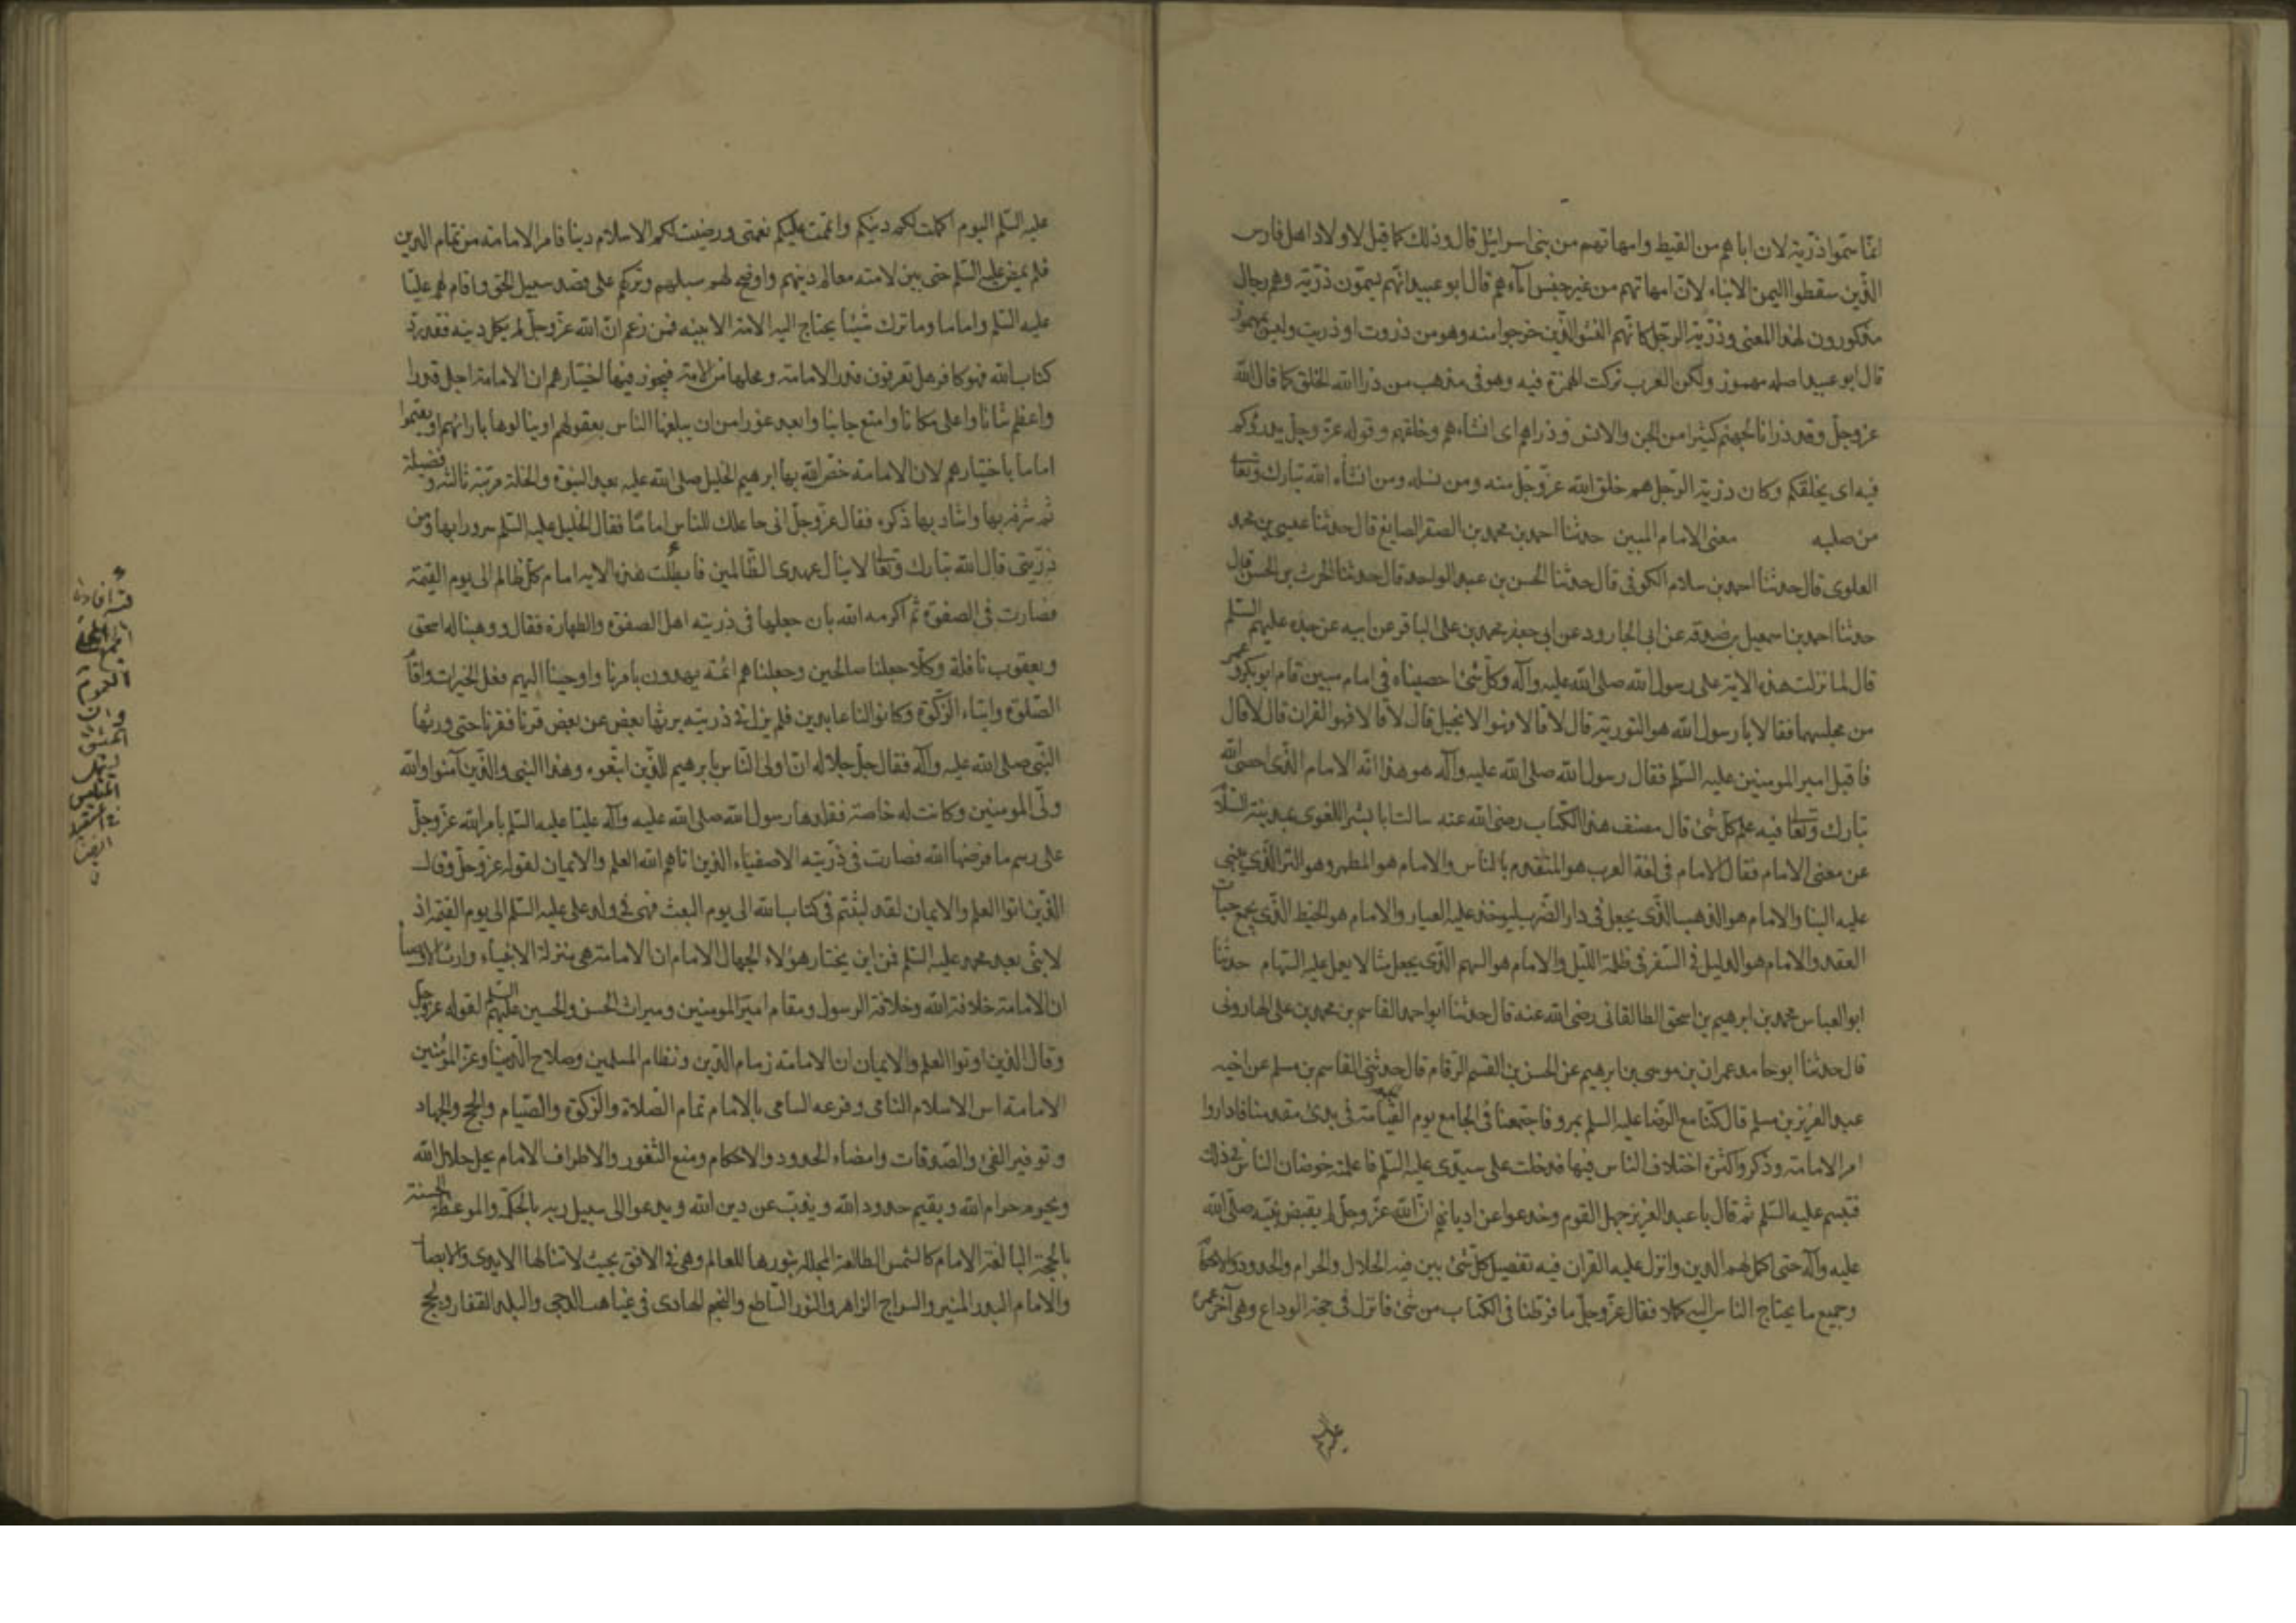 انما سموا ذرية لان اباهم من القبط وامهاتهم من بنى اسرائيل قال وذلك كما قيل لاولاد اهل فارس
الذين سقطوا الى اليمن الابناء لان امهاتهم من غير جنس آبائهم قال ابو عبيد انهم يسمون ذرية وهم رجال
مذكورون لهذا المعنى وذرية الرجل كانهم النشو الذين خرجوا منه وهو من ذروت او ذريت وليس بمهموز
قال ابو عبيد اصله مهموز ولكن العرب تركت الهمزة فيه وهو فى مذهب من ذرا الله الخلق كما قال الله
عز وجل ولقد ذرانا لجهنم كثيرا من الجن والانس وذراهم اى انشاءهم وخلقهم وقوله عز وجل يذرؤكم
فيه اى يخلقكم وكان ذرية الرجل هم خلق الله عز وجل منه ومن نسله ومن انشاء الله تبارك وتعالى
من صلبه معنى الامام المبين حدثنا احمد بن محمد بن الصقر الصايغ قال حدثنا عيسى بن محمد
العلوى قال حدثنا احمد بن سلام الكوفى قال حدثنا الحسن بن عبد الواحد قال حدثنا الحرث بن الحسن قال
حدثنا احمد بن اسمعيل بن صدقه عن ابى الجارود عن ابى جعفر محمد بن على الباقر عن ابيه عن جده عليهم السلم
قال لما نزلت هذه الاية على رسول الله صلى الله عليه وآله وكل شئ احصيناه فى امام مبين قام ابو بكر وعمر
من مجلسهما فقالا يا رسول الله هو التورية قال لا قالا فهو الانجيل قال لا قالا فهو القران قال لا قال
فاقبل امير المومنين عليه السلم فقال رسول الله صلى الله عليه وآله هو هذا انه الامام الذى احصى الله
تبارك وتعالى فيه علم كل شئ قال مصنف هذا الكتاب رضى الله عنه سالت ابا بشر اللغوى بمدينة السلام
عن معنى الامام فقال الامام فى لغة العرب هو المتقدم بالناس والامام هو المطمر وهو التر الذى يبنى
عليه البنا والامام هو الذهب الذى يجعل فى دار الضرب ليوخذ عليه العيار والامام هو الخيط الذى يجمع حبات
العقد والامام هو الدليل فى السفر فى ظلمة الليل والامام هو السهم الذى يجعل مثالا يعمل عليه السهام حدثنا
ابو العباس محمد بن ابرهيم بن اسحق الطالقانى رضى الله عنه قال حدثنا ابو احمد القاسم بن محمد بن على الهارونى
قال حدثنا ابو حامد عمران بن موسى بن ابرهيم عن الحسن بن القسم الرقام قال حدثنى القاسم بن مسلم عن اخيه
عبد العزيز بن مسلم قال كنا مع الرضا عليه السلم بمرو فاجتمعنا فى الجامع يوم القيامة جمعه فى بدئ مقدمنا فاداروا
امر الامامة وذكروا كثرة اختلاف الناس فيها فدخلت على سيدى عليه السلم فاعلمته خوضان الناس فى ذلك
فتبسم عليه السلم ثم قال يا عبد العزيز جهل القوم وخدعوا عن اديانهم ان الله عز وجل لم يقبض نبيه صلى الله
عليه وآله حتى اكمل لهم الدين وانزل عليه القران فيه تفصيل كل شئ بين فيه الحلال والحرام والحدود والاحكام
وجميع ما يحتاج الناس اليه كملا فقال عز وجل ما فرطنا فى الكتاب من شئ فانزل فى حجة الوداع وهى آخر عمره
عليه
عليه السلم اليوم اكملت لكم دينكم واتممت عليكم نعمتى ورضيت لكم الاسلام دينا فامر الامامة من تمام الدين
فلم يمض عليه السلم حتى بين لامته معالم دينهم واوضح لهم سبلهم وتركهم على قصد سبيل الحق واقام لهم عليا
عليه السلم واماما وما ترك شيئا يحتاج اليه الامة الا بينه فمن زعم ان الله عز وجل لم يكمل دينه فقد رد
كتاب الله فهو كافر هل تعرفون قدر الامامة ومحلها من الامة فيجوز فيها اختيارهم ان الامامة اجل قدرا
واعظم شانا واعلى مكانا وامنع جانبا وابعد غورا من ان يبلغها الناس بعقولهم او ينالوها بارائهم او يقيموا
اماما باختيارهم لان الامامة خص الله بها ابرهيم الخليل صلى الله عليه بعد النبوة والخلة مرتبة ثالثه وفضيلة
ثم شرفه بها واشاد بها ذكره فقال عز وجل انى جاعلك للناس اماما فقال الخليل عليه السلم سرورا بها ومن
ذريتى قال الله تبارك وتعالى لا ينال عهدى الظالمين فابطلت هذه الاية امام كل ظالم الى يوم القيمة
فصارت فى الصفوة ثم اكرمه الله بان جعلها فى ذريته اهل الصفوة والطهارة فقال ووهبنا له اسحق
ويعقوب نافلة وكلا جعلنا صالحين وجعلناهم ائمة يهدون بامرنا واوحينا اليهم فعل الخيرات واقام
الصلوة وايتاء الزكوة وكانوا لنا عابدين فلم يزل فى ذريته يرثها بعض عن بعض قرنا فقرنا حتى ورثها
النبى صلى الله عليه وآله فقال جل جلاله ان اولى الناس بابرهيم للذين اتبعوه وهذا النبى والذين آمنوا والله
ولى المومنين وكانت له خاصة فقلدها رسول الله صلى الله عليه وآله عليا عليه السلم بامر الله عز وجل
على رسم ما فرضها الله فصارت فى ذريته الاصفياء الذين اتاهم الله العلم والايمان لقوله عز وجل وقال
الذين اوتوا العلم والايمان لقد لبثتم فى كتاب الله الى يوم البعث فهى فى ولد على عليه السلم الى يوم القيمة اذ
لا نبى بعد محمد عليه السلم فمن اين يختار هؤلاء الجهال الامام ان الامامة هى منزلة الانبياء وارث الاوصيا
ان الامامة خلافة الله وخلافة الرسول ومقام امير المومنين وميراث الحسن والحسين عليهم السلم لقوله عز وجل
وقال الذين اوتوا العلم والايمان ان الامامة زمام الدين ونظام المسلمين وصلاح الدنيا وعز المؤمنين
الامامة اس الاسلام النامى وفرعه السامى بالامام تمام الصلاة والزكوة والصيام والحج والجهاد
وتوفير الفئ والصدقات وامضاء الحدود والاحكام ومنع الثغور والاطراف الامام يحل حلال الله
ويحرم حرام الله ويقيم حدود الله ويذب عن دين الله ويدعوا الى سبيل ربه بالحكمة والموعظة الحسنة
بالحجة البالغة الامام كالشمس الطالعة المجللة بنورها للعالم وهى فى الافق بحيث لا تنالها الايدى والابصار
والامام البدر المنير والسراج الزاهر والنور الساطع والنجم الهادى فى غياهب الدجى والبلد القفار ولجج